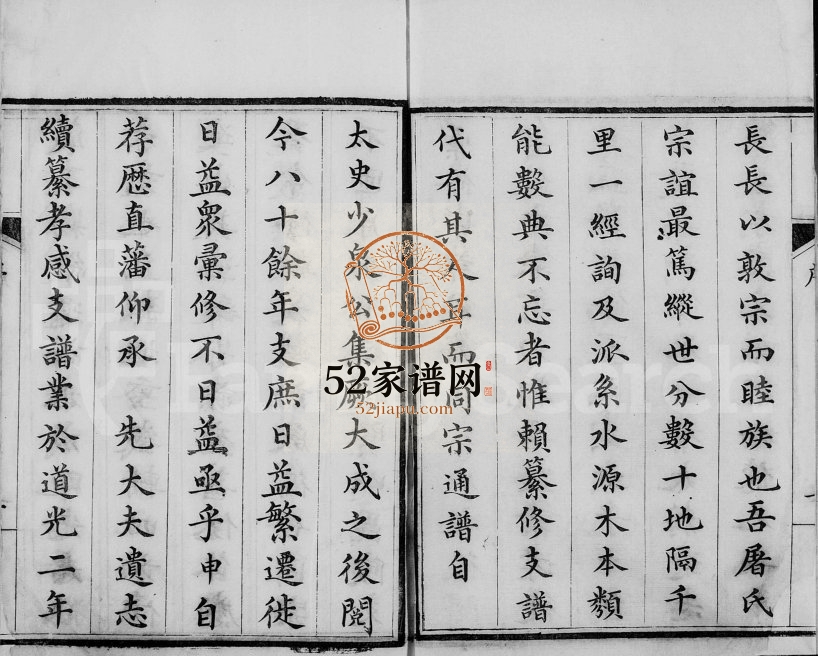 長長以敦宗而睦族也吾屠氏
宗誼最篤縱世分數十地隔千
里一經詢及派系水源木本類
能數典不忘者惟賴纂修支譜
代有其人耳而同宗通譜自
太史少泉公集厥大成之後閱
今八十餘年支庶日益繁遷徙
日益衆彙修不日益亟乎申自
荐歷直藩仰承 先大夫遺志
續纂孝感支譜業於道光二年
52家谱网
52jiapu.com